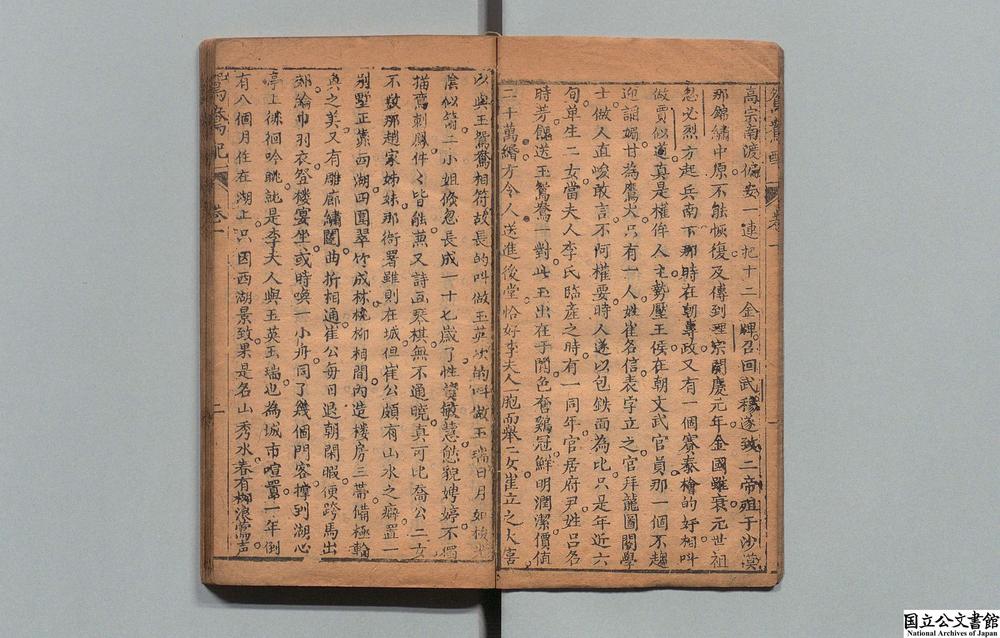 鴛鴦配 卷一 一
高宗南渡偏安一連把十二金牌召回武穆遂致二帝殂于沙漠
那錦繡中原不能恢復及傳到理宗開慶元年金國雖衰元世祖
忽必烈方起兵南下那時在朝專政又有一個賽秦檜的奸相叫
做賈似道真是權侔人主勢壓王侯在朝文武官員那一個不趨
迎謟媚甘為鷹犬只有一人姓崔名信表字立之官拜龍圖閣學
士做人直峻敢言不阿權要時人遂以包鉄面為比只是年近六
旬单生二女當夫人李氏臨產之時有一同年官居府尹姓呂名
時芳餽送玉鴛鴦一對此玉出在于闐色奪鷄冠鮮明潤潔價值
二十萬緡方令人送進後堂恰好李夫人一胞而舉二女崔立之大喜
以與玉鴛鴦相符故長的叫做玉英次的叫做玉瑞日月如梭光
陰似箭二小姐倐忽長成一十七歲了性資敏慧態貌娉婷不獨
描鸞刺鳳件〻皆能兼又詩画琴棋無不通曉真可比喬公二女
不數那趙家姊妹那衙署雖則在城但崔公頗有山水之癖置一
别墅正靠西湖四圍翠竹成林桃柳相間內造楼房三帶備極輪
奂之美又有雕廊繡闥曲折相通崔公每日退朝閑暇便跨馬出
郊綸巾羽衣登楼宴坐或時喚一小舟同了幾個門客撑到湖心
亭上徘徊吟眺就是李夫人與玉英玉瑞也為城市喧囂一年倒
有八個月住在湖上只因西湖景致果是名山秀水春有柳浪鶯声
鴛鴦配 卷一 二
国立公文書館
National Archives of Japan